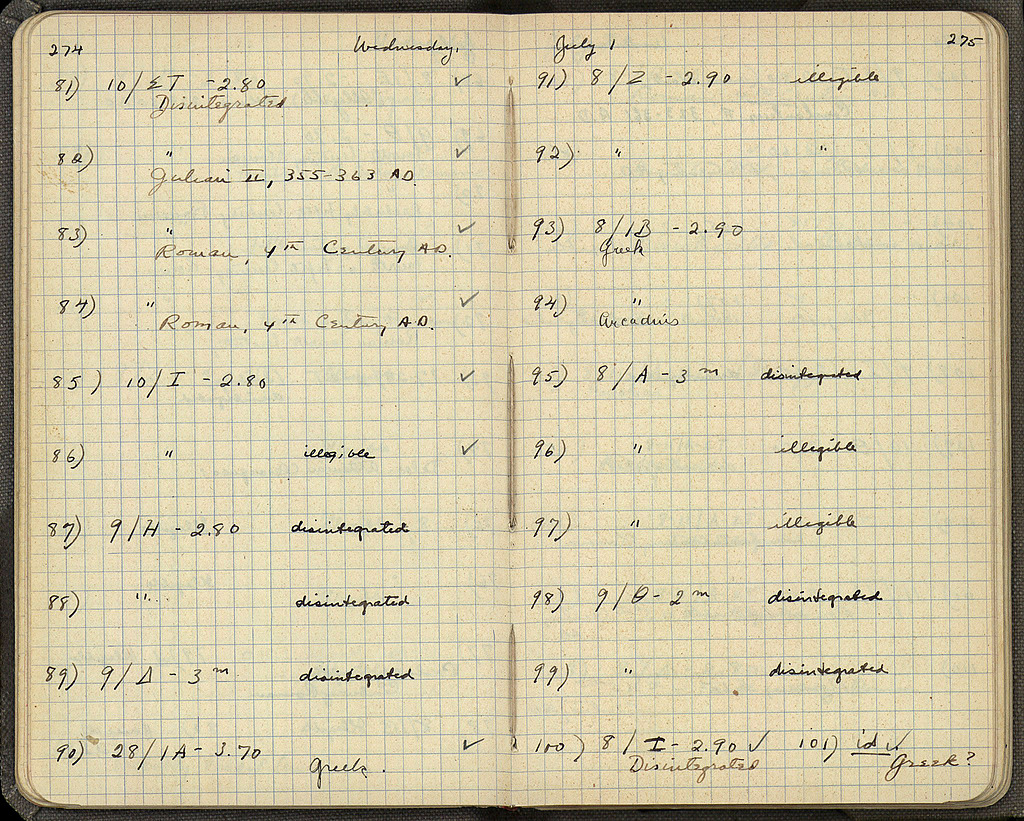 274 Wednesday,
81) 10/ΣT - 2.80 ✓
Disintegrated
82) " ✓
Julian II, 355-363 AD.
83) " ✓
Roman, 4th Century A.D.
84) " ✓
Roman, 4th Century A.D.
85) 10/I - 2.80 ✓
86) " illegible ✓
87) 9/H - 2.80 disintegrated
88) " disintegrated
89) 9/Δ - 3m disintegrated
90) 28/1A - 3.70 ✓
Greek.
July 1 275
91) 8/Z - 2.90 illegible
92) " "
93) 8/1B - 2.90
Greek
94) "
Arcadius
95) 8/A - 3m disintegrated
96) " illegible
97) " illegible
98) 9/Θ - 2m disintegrated
99) " disintegrated
100) 8/I - 2.90 ✓ 101) id ✓
Disintegrated Greek?